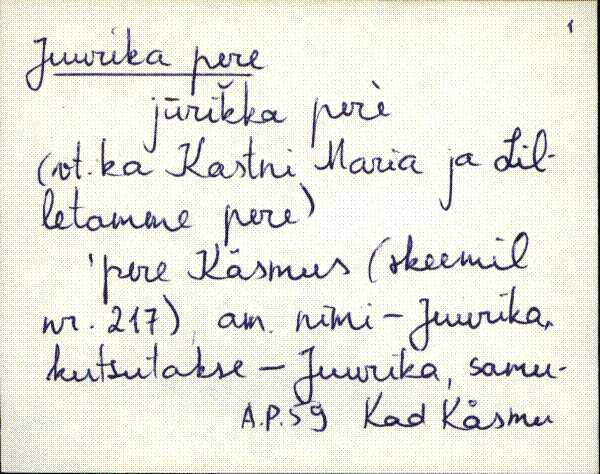 1
Juurika pere
jūrikka perè
(vt. ka Kastni Maria ja Lil-
letamme pere)
'pere Käsmus (skeemil
nr. 217), am. nimi – Juurika,
kutsutakse – Juurika, samu-
A.P.59 Kad Käsmu